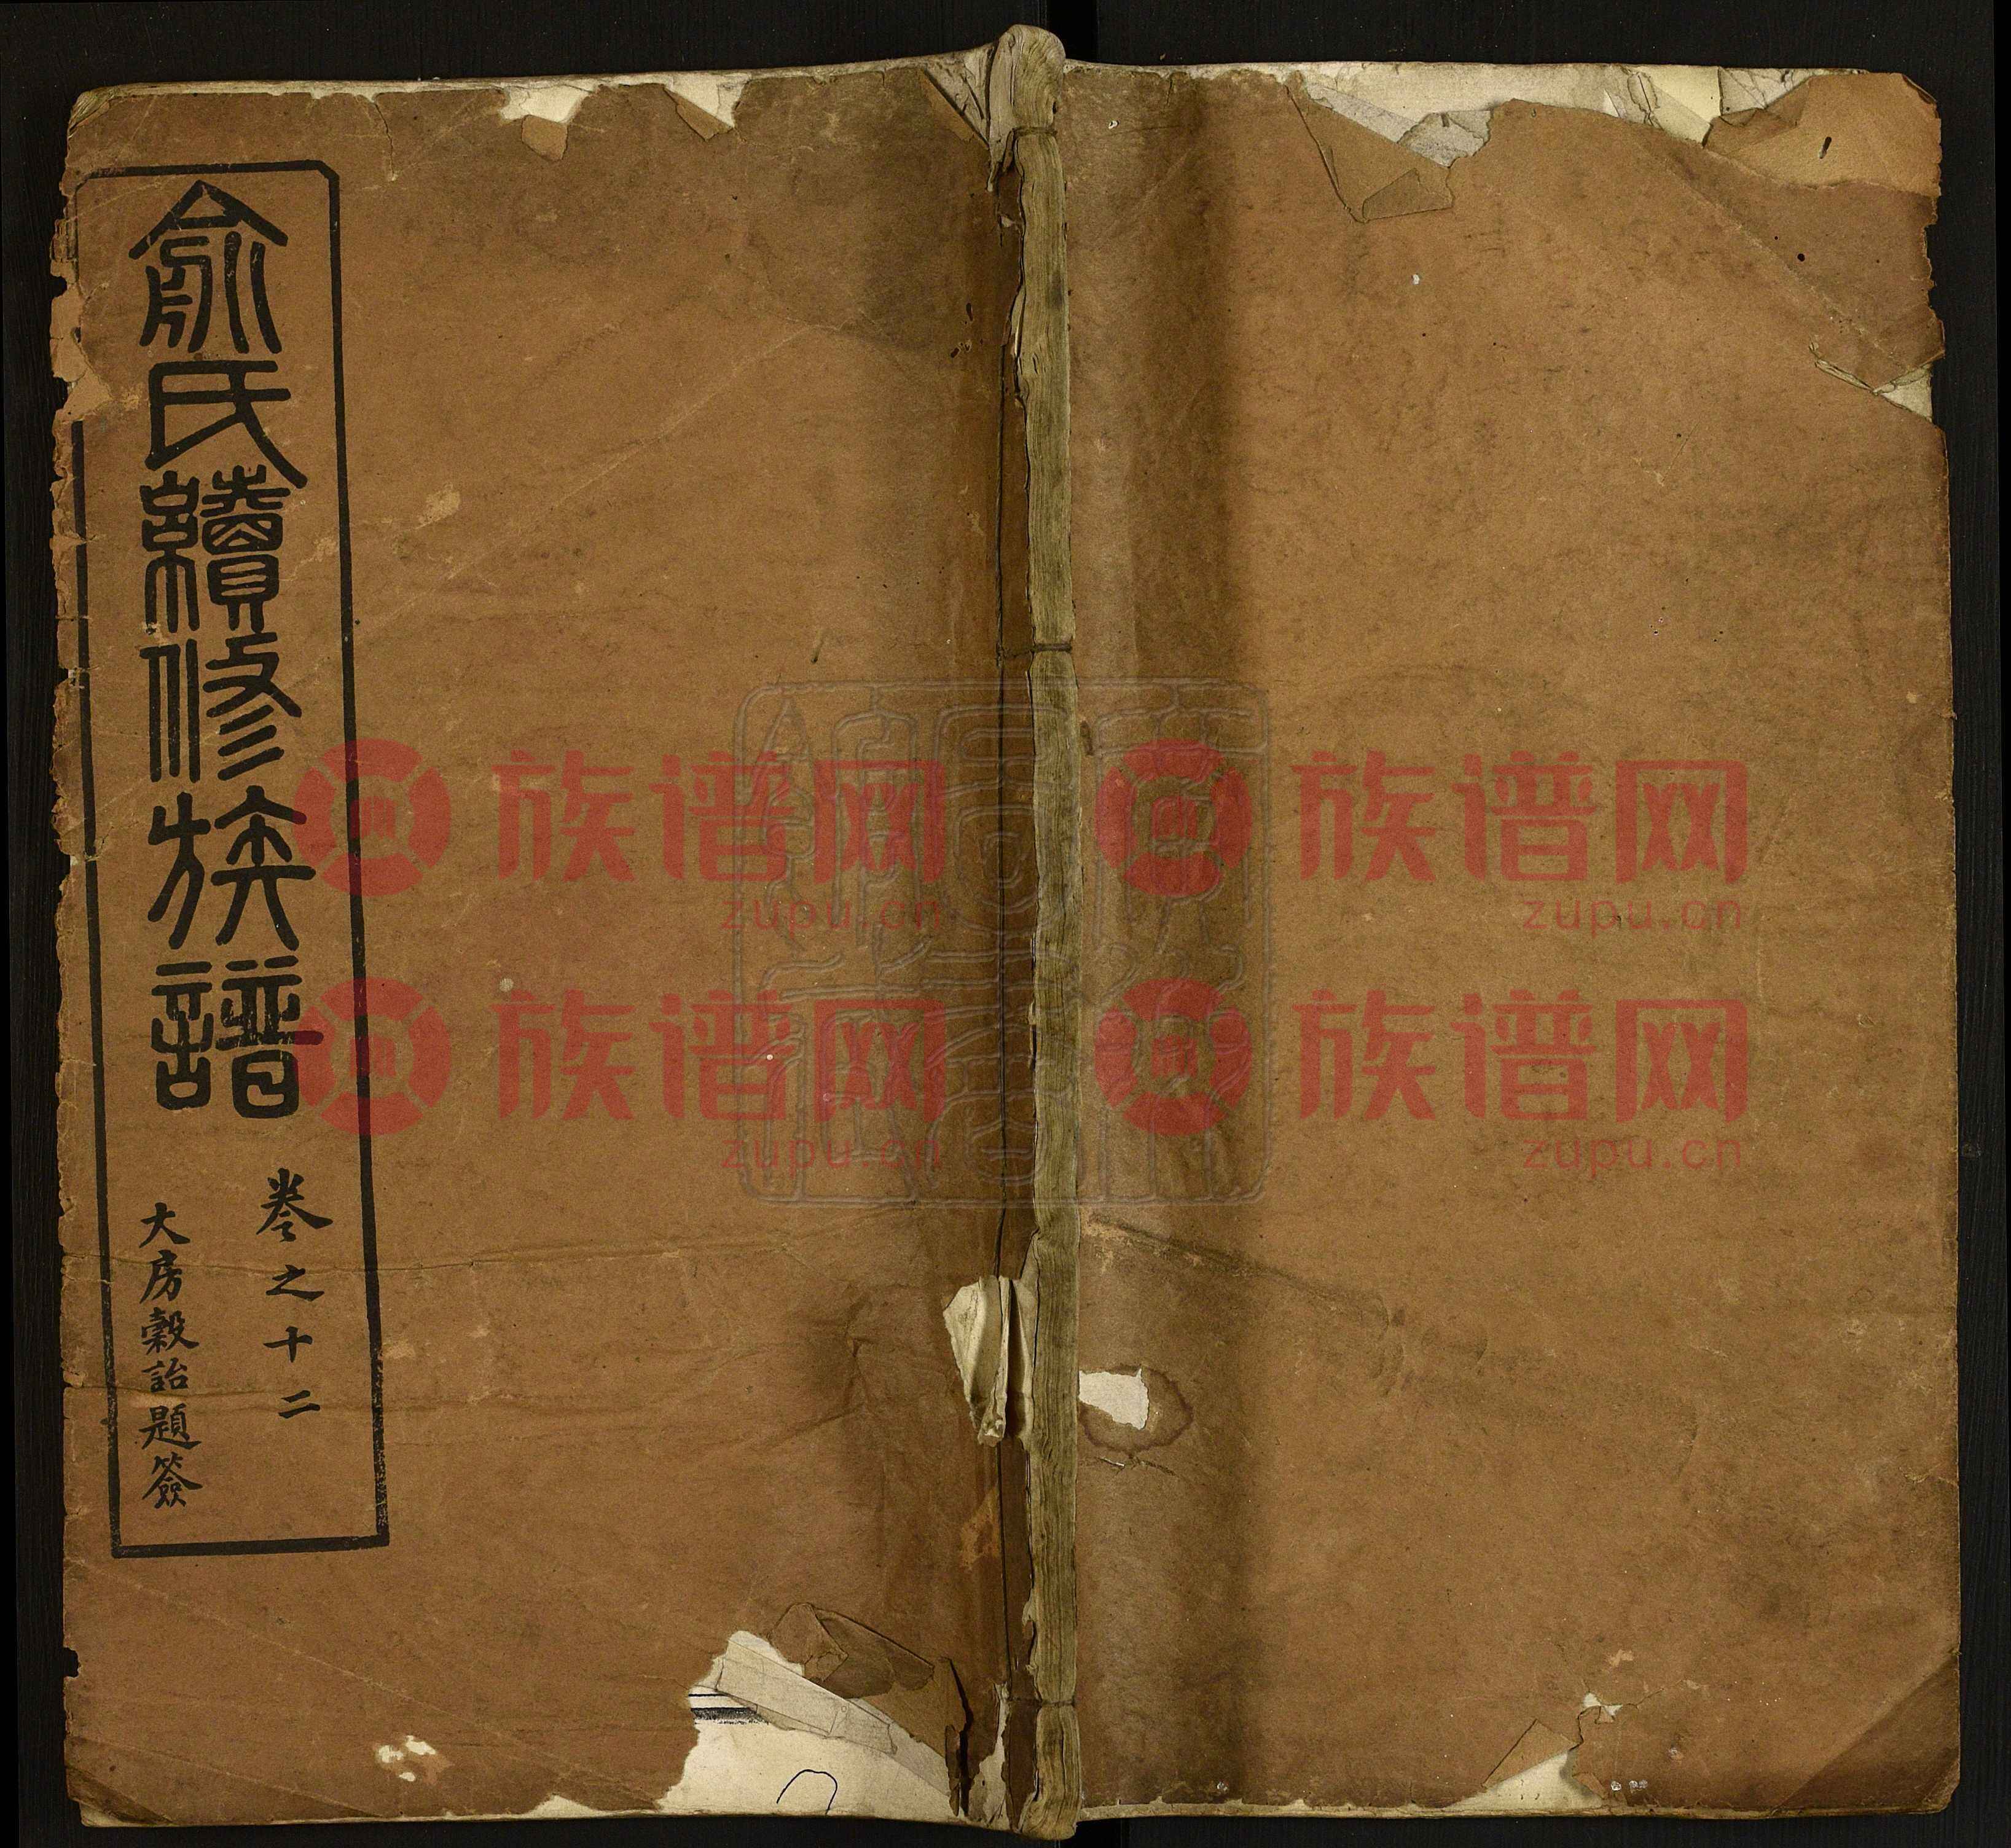 俞氏續修族譜
卷之十二
大房穀詒題簽
族谱网
zupu.cn
族谱网
zupu.cn
族谱网
zupu.cn
族谱网
zupu.cn